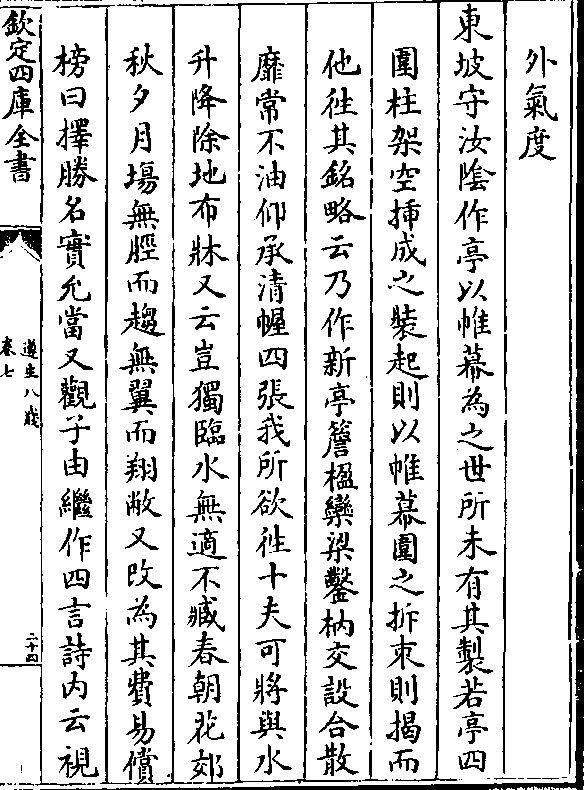 外氣度
東坡守汝陰作亭以帷幕為之世所未有其製若亭四
圍柱架空挿成之裝起則以帷幕圍之拆朿則揭而
他徃其銘略云乃作新亭簷楹欒梁鑿枘交設合散
靡常不油仰承清幄四張我所欲徃十夫可將與水
升降除地布牀又云豈獨臨水無適不臧春朝花郊
秋夕月塲無脛而趨無翼而翔敝又改為其費易償
榜曰擇勝名實允當又觀子由繼作四言詩内云視
欽定四庫全書
遵生八牋
卷七
二十四